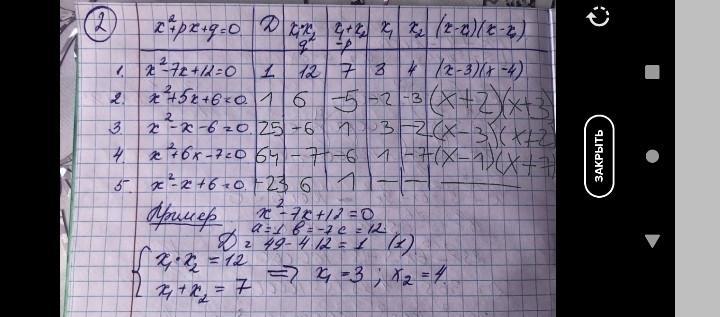 2 x²+px+q=0 D x₁·x₂ q x₁+x₂ -p x₁ x₂ (x-x₁)(x-x₂)
1. x²-7x+12=0 1 12 7 3 4 (x-3)(x-4)
2. x²+5x+6=0 1 6 -5 -2 -3 (x+2)(x+3)
3. x²-x-6=0 25 -6 1 3 -2 (x-3)(x+2)
4. x²+6x-7=0 64 -7 -6 1 -7 (x-1)(x+7)
5. x²-x+6=0 -23 6 1 — — —
Пример x²-7x+12=0
a=1 b=-7 c=12
D=49-4·12=1 (1)
x₁·x₂=12
x₁+x₂=7 => x₁=3; x₂=4
ЗАКРЫТЬ